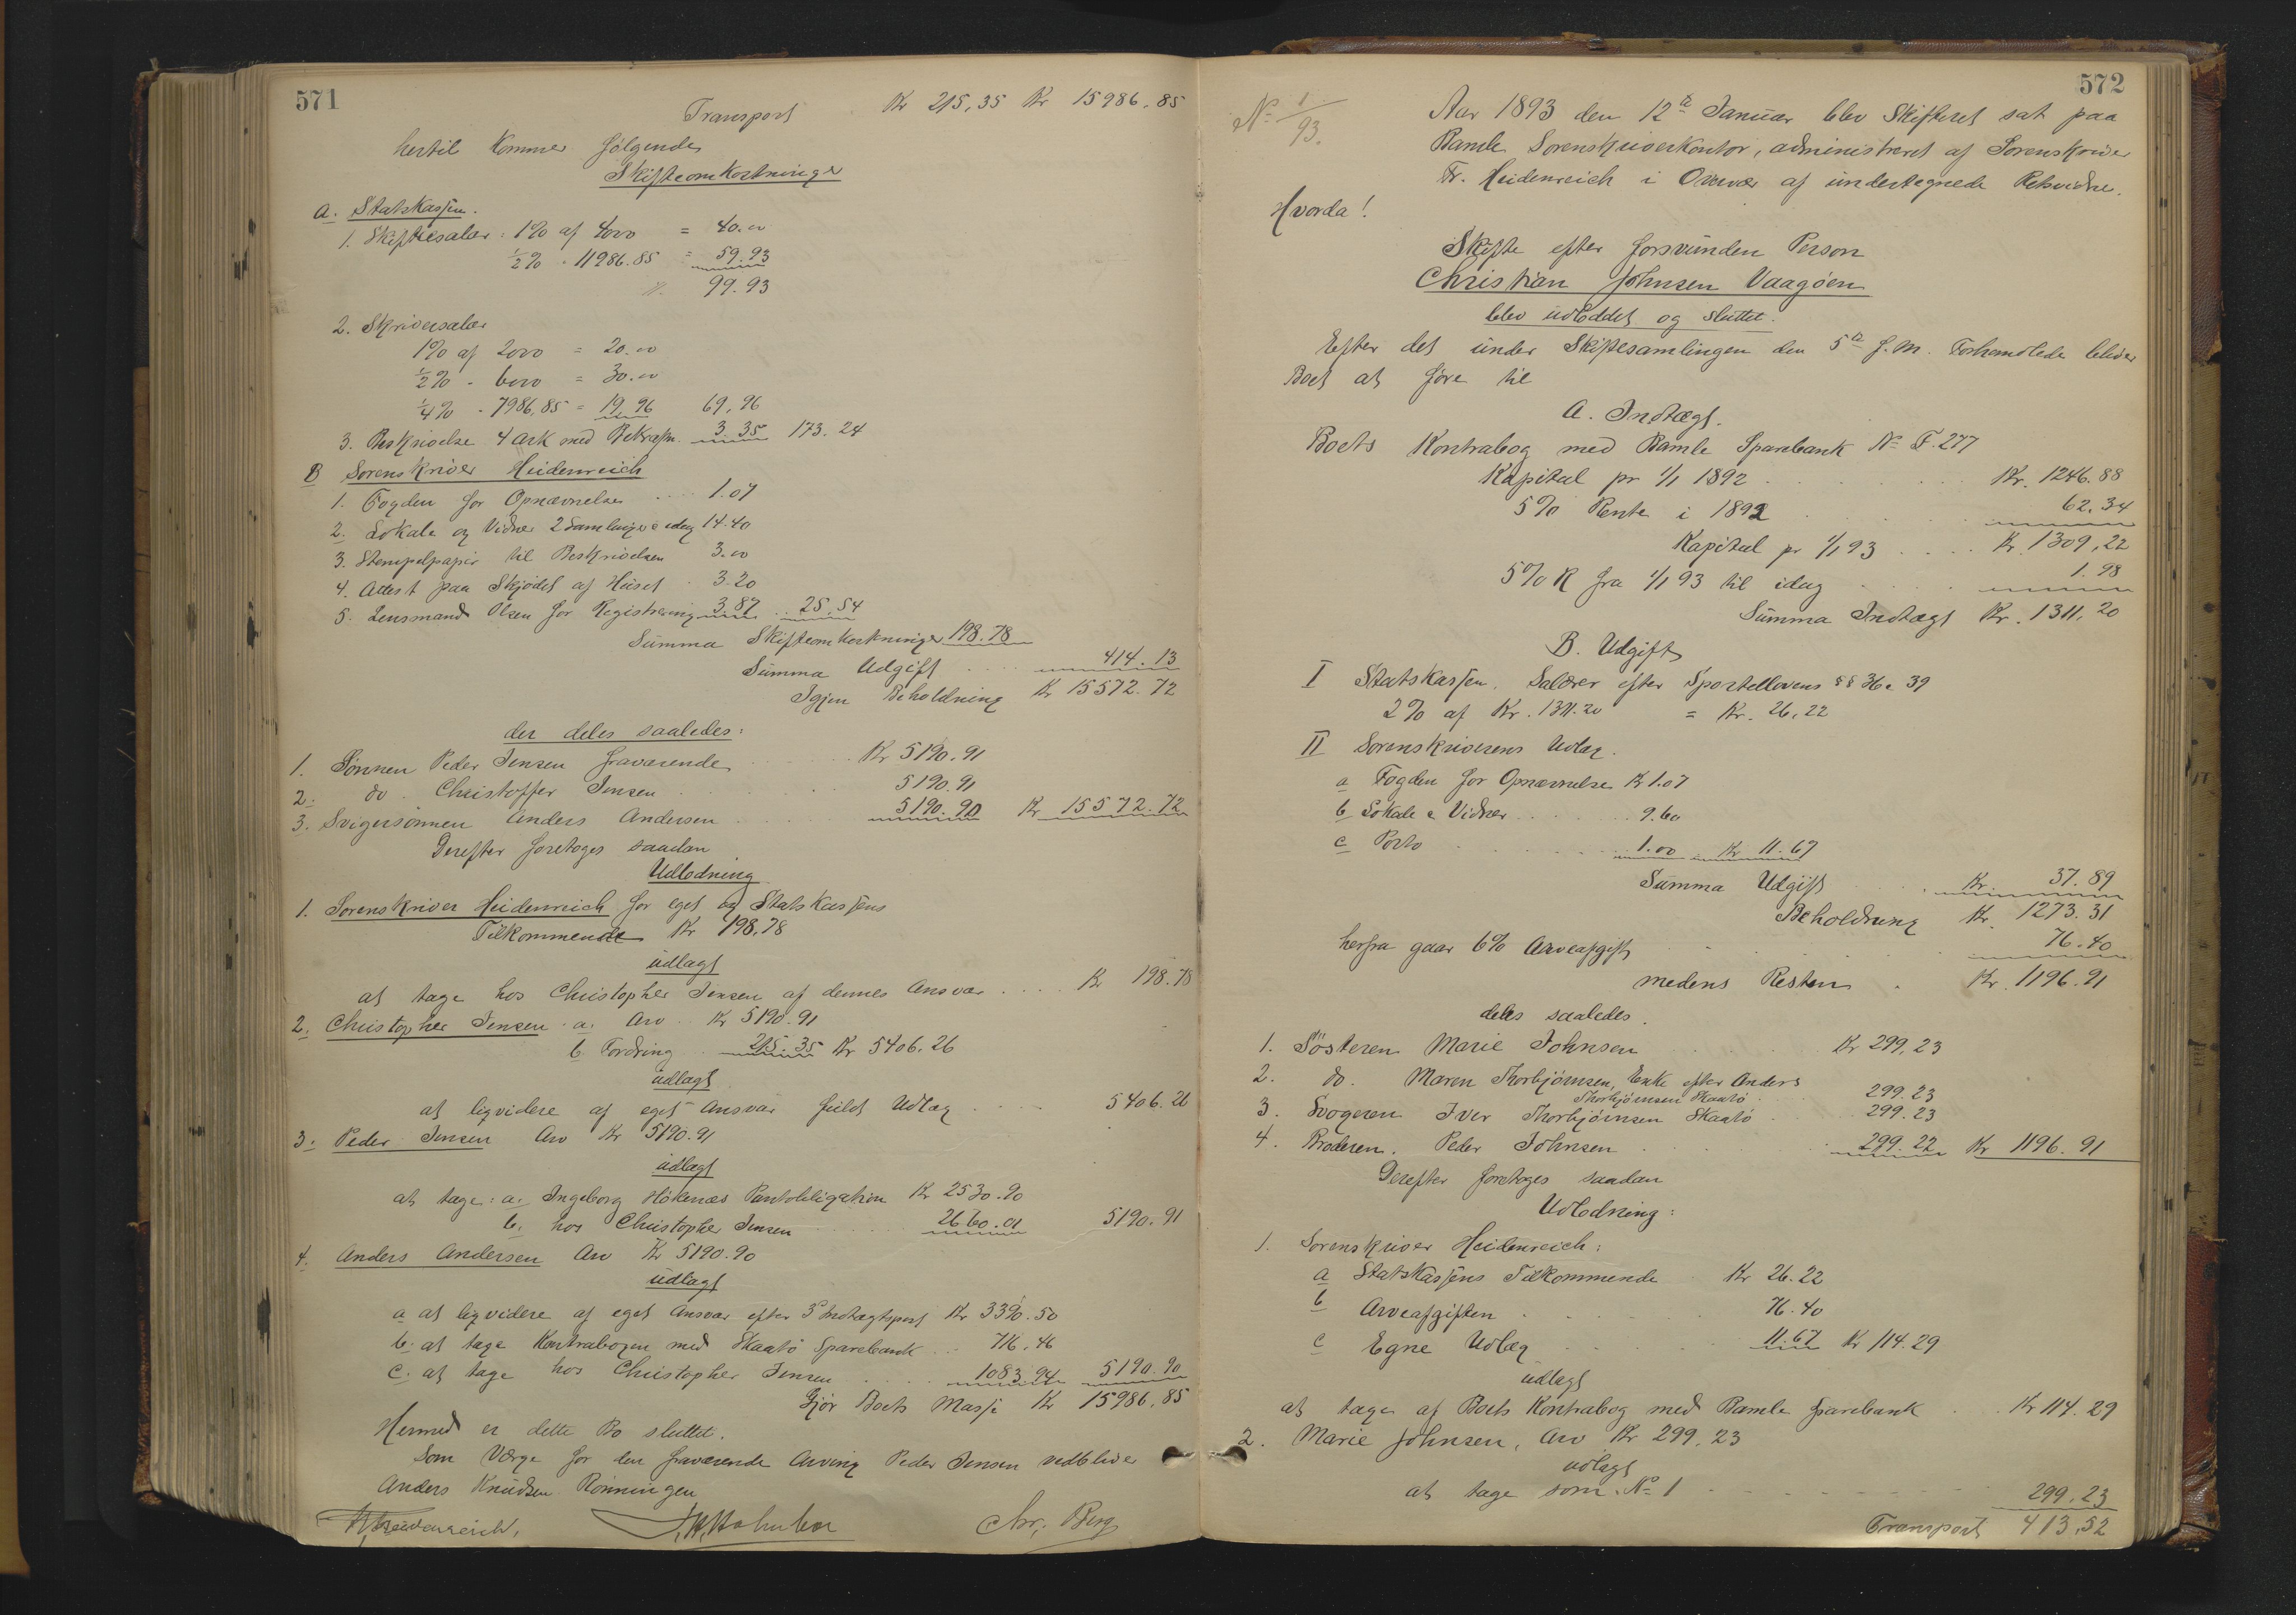 571
Transport Kr 215,35 Kr 15986,85
hertil kommer følgende
Skifteomkostninger
A. Statskassen.
1. Skiftesalær: 1% af 4000 = 40.00
½% - 11986.85 = 59.93
99.93
2. Skriversalær
1% af 2000 = 20.00
½% - 6000 = 30.00
¼% - 7986,85 = 19,96 69,96
3. Beskrivelse 4 Ark med Bekræftn. 3.35 173.24
B Sorenskriver Heidenreich
1. Fogden for Opnævnelse .... 1.07
2. Lokale og Vidner 2 Samlinger o idag 14.40
3. Stempelpapir til Beskrivelsen 3.00
4. Attest paa Skjødet af Huset - 3.20
5. Lensmand Olsen for Registrering 3.87 .. 25,54
Summa Skifteomkostninger 198.78
Summa Udgift .... 414.13
Igjen Beholdning Kr 15572.72
der deles saaledes:
1. Sønnen Peder Jensen fraværende .... Kr 5190.91
2. do. Christoffer Jensen .... 5190.91
3. Svigersønnen Anders Andersen .... 5190.90 Kr 15572.72
Derefter foretoges saadan
Udlodning
1. Sorenskriver Heidenreich for eget og Statskassens
Tilkommende Kr 198,78
udlagt
at tage hos Christopher Jensen af dennes Ansvar .... Kr 198.78
2. Christopher Jensen a. Arv .. Kr 5190.91
b. Fordring . 215.35 Kr 5406.26
udlagt
at liqvidere af eget Ansvar fuldt Udlæg .... 5406.26
3. Peder Jensen Arv Kr 5190.91
udlagt
at tage: a. Ingeborg Høknæs Pantobligation Kr 2530.90
b. hos Christopher Jensen .... 2660.01 5190.91
4. Anders Andersen Arv Kr 5190.90
udlagt
a at liqvidere af eget Ansvar efter 3die Indtægtspost Kr 3390.50
b. at tage Kontrabogen med Skaatø Sparebank ... 716.46
c. at tage hos Christopher Jensen .... 1083.94 5190.90
Gjør Boets Masse Kr 15986,85
Hermed er dette Bo sluttet.
Som Værge for den fraværende Arving Peder Jensen vedbliver
Anders Knudsen Rønningen
Heidenreich. Chr. Berg
572
No 1/93.
Aar 1893 den 12te Januar blev Skifteret sat paa
Bamle Sorenskriverkontor, administreret af Sorenskriver
Fr. Heidenreich i Overvær af undertegnede Retsvidner.
Hvorda!
Skifte efter forsvunden Person
Christian Johnsen Vaagøen
blev udloddet og sluttet.
Efter det under Skiftesamlingen den 5te f.M. Forhandlede bliver
Boet at føre til
A. Indtægt.
Boets Kontrabog med Bamle Sparebank No F.277
Kapital pr 1/1 1892 .... Kr. 1246.88
5% Rente i 1892 .... 62.34
Kapital pr 1/1 93 .... Kr. 1309,22
5% R fra 1/1 93 til idag .... 1.98
Summa Indtægt Kr. 1311,20
B. Udgift
I Statskassen. Salærer efter Sportellovens §§ 36 o 39
2% af Kr. 1311.20 = Kr. 26,22
II Sorenskriverens Udlæg.
a Fogden for Opnævnelse Kr 1.07
b Lokale o Vidner .... 9.60
c Porto .... 1.00 Kr 11.67
Summa Udgift .... Kr. 37.89
Beholdning Kr. 1273.31
herfra gaar 6% Arveafgift .... 76.40
medens Resten . Kr. 1196.91
deles saaledes.
1. Søsteren Marie Johnsen .... Kr 299,23
2. do. Maren Thorbjørnsen, Enke efter Anders
Thorbjørnsen Skaatø .. 299.23
3. Svogeren Iver Thorbjørnsen Skaatø .. 299.23
4. Broderen Peder Johnsen .... 299.22 Kr 1196.91
Derefter foretoges saadan
Udlodning:
1. Sorenskriver Heidenreich:
a Statskassens Tilkommende Kr 26.22
b Arveafgiften .... 76.40
c Egne Udlæg .... 11.67 Kr 114.29
udlagt
at tage af Boets Kontrabog med Bamle Sparebank .. Kr 114.29
2. Marie Johnsen, Arv Kr 299,23
udlagt
at tage som No 1 .... 299,23
Transport 413,52